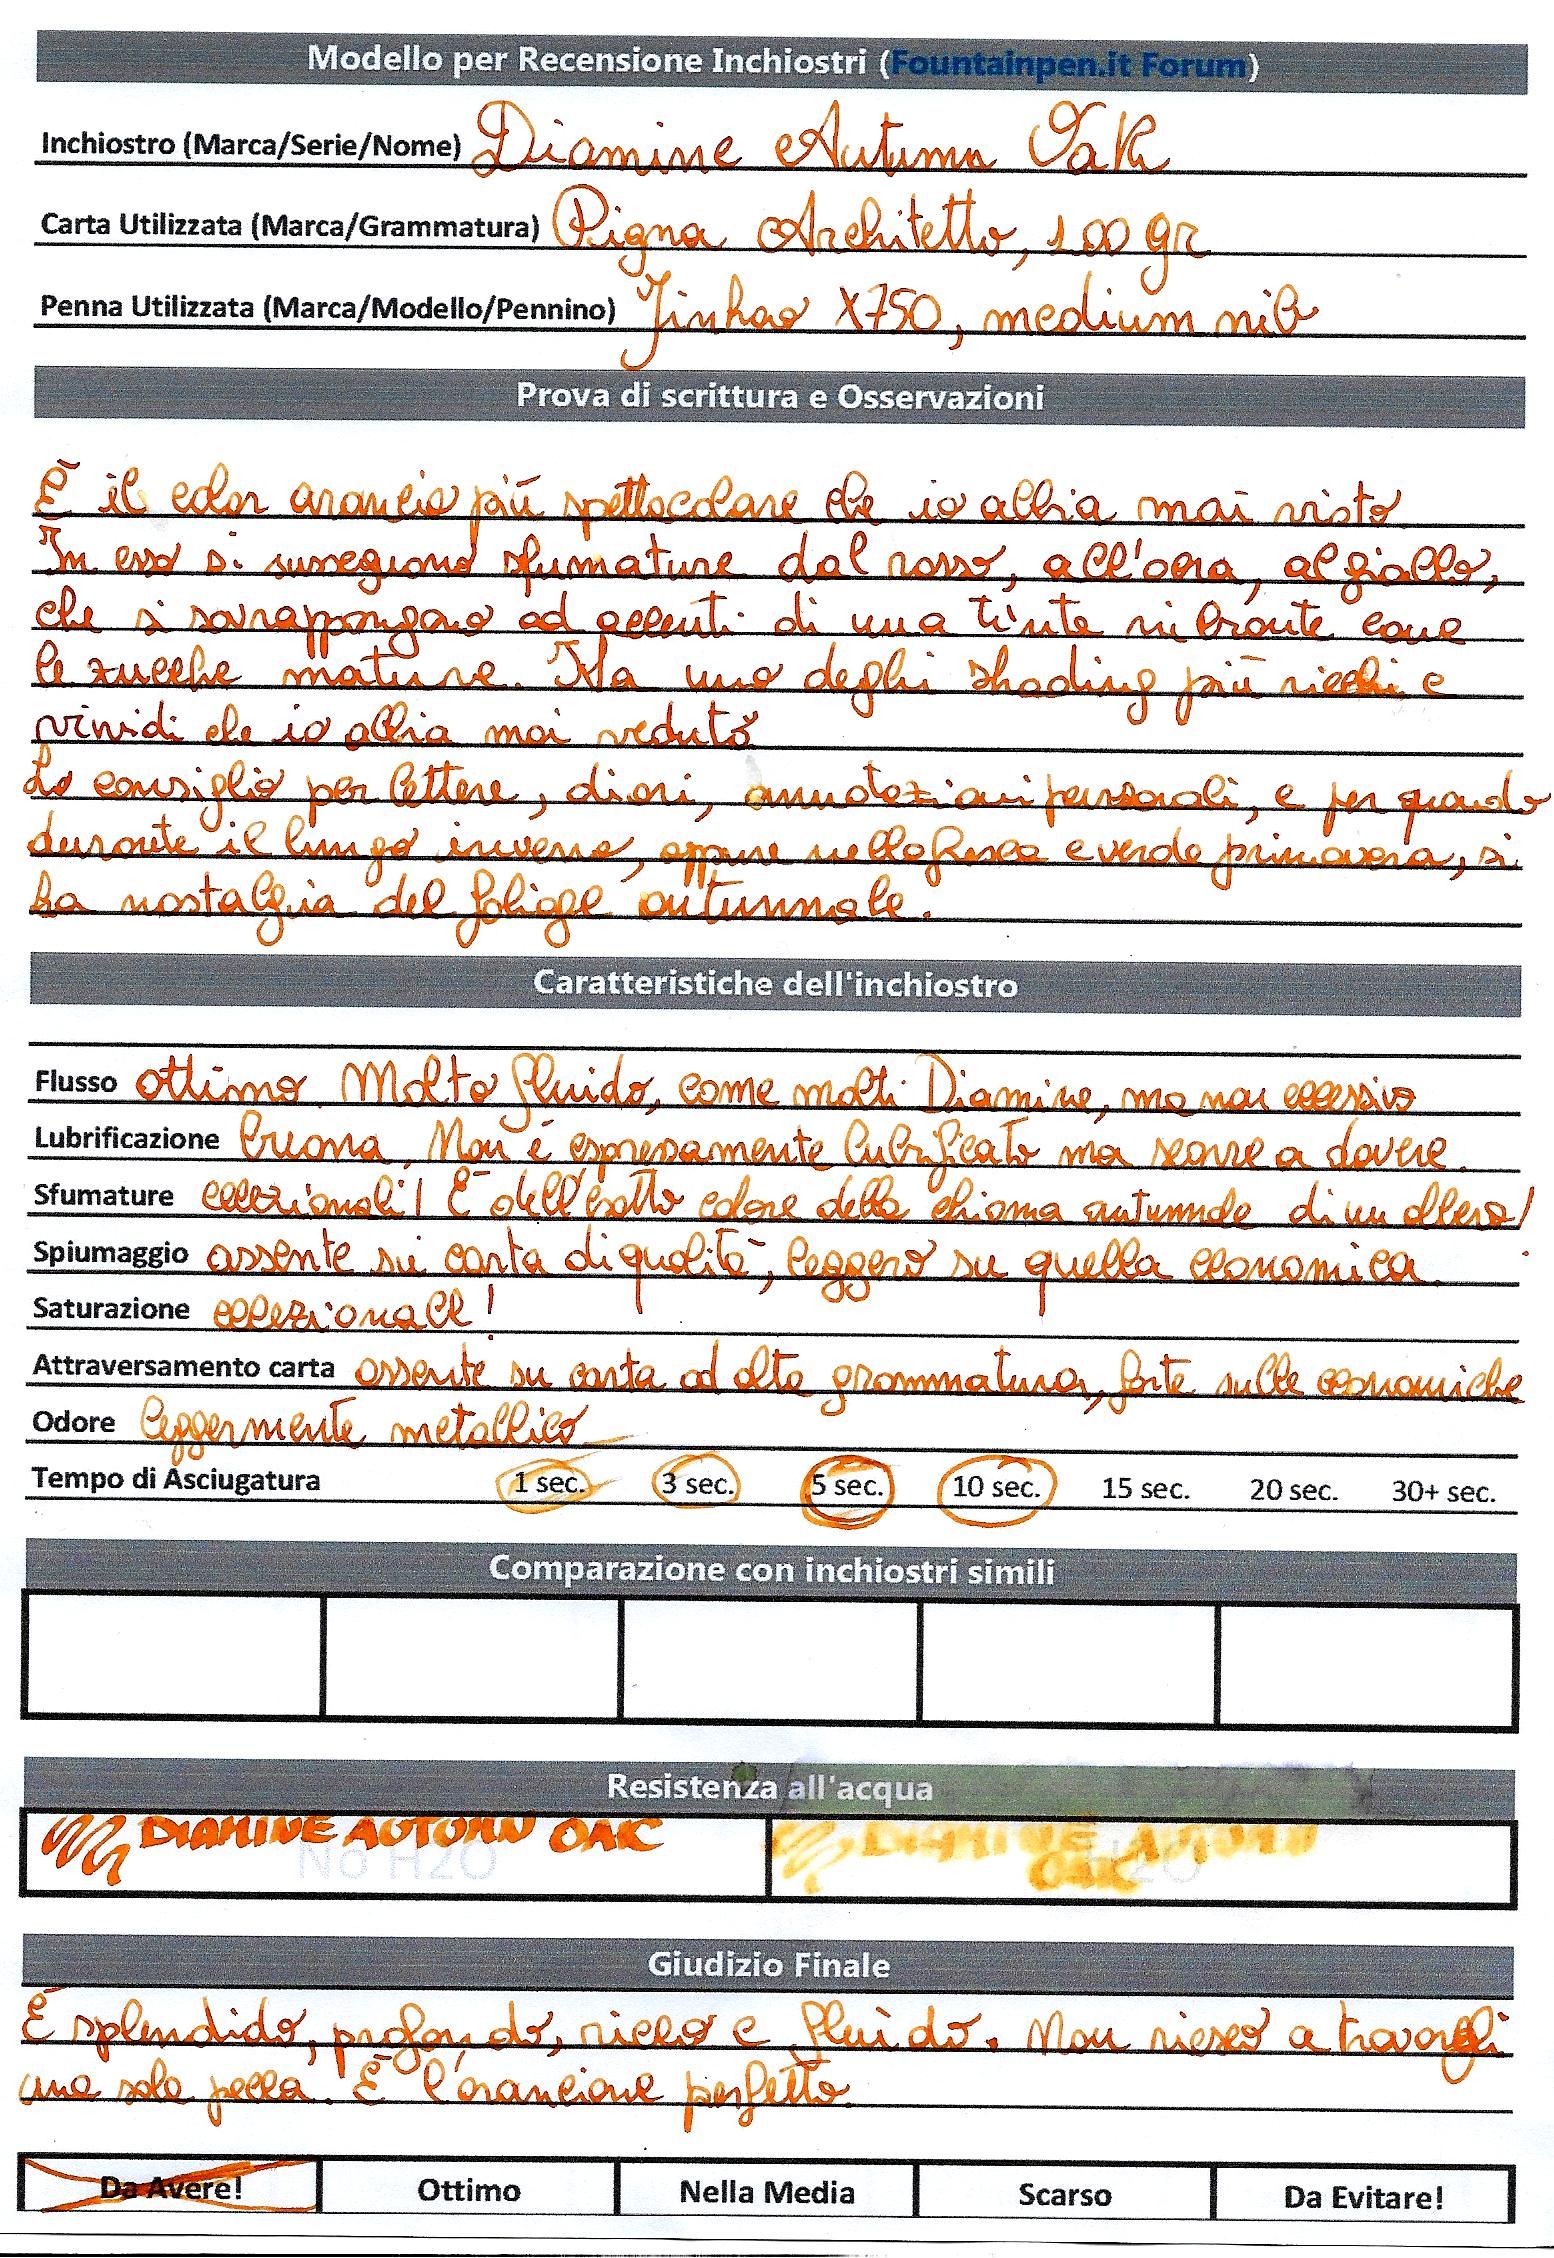 Modello per Recensione Inchiostri (Fountainpen.it Forum)
Inchiostro (Marca/Serie/Nome) Diamine Autumn Oak
Carta Utilizzata (Marca/Grammatura) Pigna Architetto, 100 gr
Penna Utilizzata (Marca/Modello/Pennino) Jinhao X750, medium nib
Prova di scrittura e Osservazioni
È il color arancio più spettacolare che io abbia mai visto
In esso si susseguono sfumature dal rosso, all'ocra, al giallo,
che si sovrappongono ad accenti di una tinta vibrante come
le zucche mature. Ha uno deghi shading più ricchi e
vividi che io abbia mai veduto
Lo consiglio per lettere, diari, annotazioni personali, e per quando
durante il lungo inverno, oppure nella fresca e verde primavera, si
ha nostalgia del foliage autunnale.
Caratteristiche dell'inchiostro
Flusso ottimo. Molto fluido, come molti Diamine, ma non eccessivo
Lubrificazione buona. Non é espressamente lubrificato ma scorre a dovere.
Sfumature eccezionali! È dell'esatto colore della chioma autunnale di un albero!
Spiumaggio assente su carta di qualità, leggero su quella economica.
Saturazione eccezionale!
Attraversamento carta assente su carta ad alta grammatura, forte sulle economiche
Odore leggermente metallico
Tempo di Asciugatura 1 sec. 3 sec. 5 sec. 10 sec. 15 sec. 20 sec. 30+ sec.
Comparazione con inchiostri simili
Resistenza all'acqua
DIAMINE AUTUMN OAK DIAMINE AUTUMN
No H2O OAK H2O
Giudizio Finale
È splendido, profondo, ricco e fluido. Non riesco a trovargli
una sola pecca. È l'arancione perfetto.
Da Avere! Ottimo Nella Media Scarso Da Evitare!